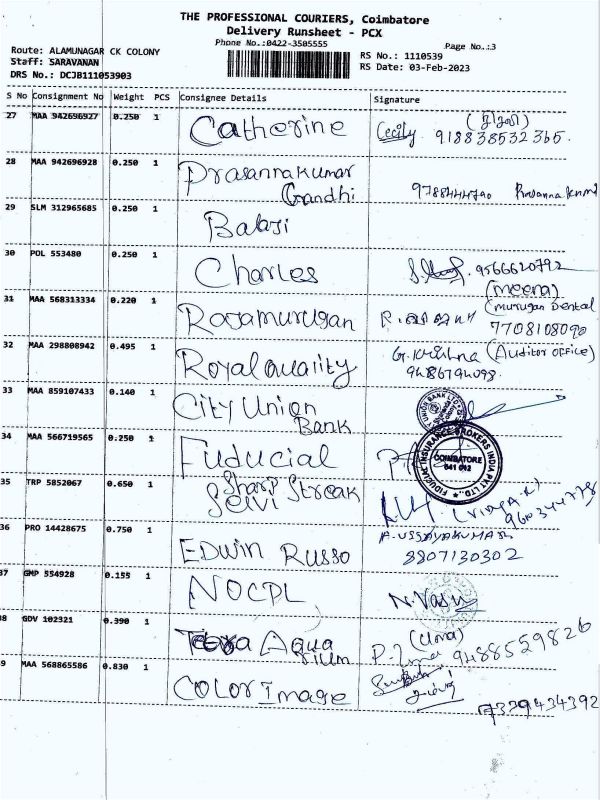 THE PROFESSIONAL COURIERS, Coimbatore
Delivery Runsheet - PCX
Phone No.:0422-3505555
Page No.:3
Route: ALAMUNAGAR CK COLONY
Staff: SARAVANAN
DRS No.: DCJB111053903
RS No.: 1110539
RS Date: 03-Feb-2023
S No Consignment No Weight PCS Consignee Details Signature
27 MAA 942696927 0.250 1 Catherine Cecily 918838532365.
28 MAA 942696928 0.250 1 Prasannakumar
Gandhi
29 SLM 312965685 0.250 1 Balaji
30 POL 553480 0.250 1 Charles 9566620792
(meena)
31 MAA 568313334 0.220 1 Rajamurugan (murugan Dental
7708108090
32 MAA 298808942 0.495 1 Royal quality G. Krishna (Auditor office)
9486794098.
33 MAA 859107433 0.140 1 City Union
Bank
34 MAA 566719565 0.250 1 Fuducial
FIDUCIAL INSURANCE BROKERS INDIA PVT. LTD.
COIMBATORE
641 012
35 TRP 5852067 0.650 1 Sharp Streak
Selvi
36 PRO 14428675 0.750 1 EDWIN RUSSO
8807130302
37 GMP 554928 0.155 1 NOCPL N. Vasu
38 GDV 102321 0.390 1 Aqua (Uma)
9488559826
39 MAA 568865586 0.830 1 COLOR Image
7339434392